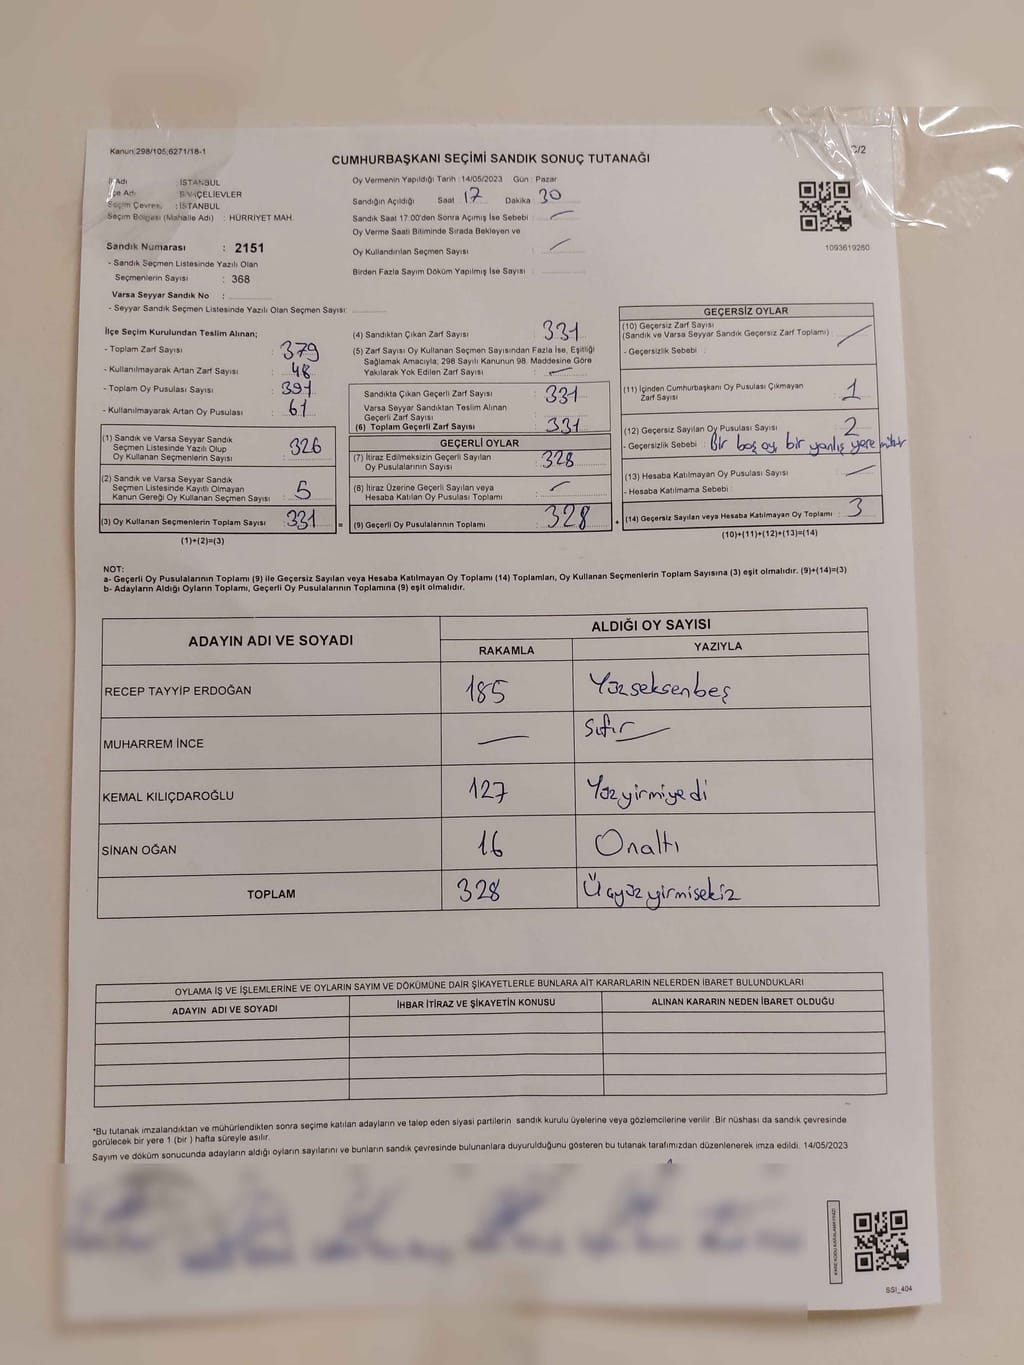 Kanun:298/105,6271/18-1
C/2
CUMHURBAŞKANI SEÇİMİ SANDIK SONUÇ TUTANAĞI
İl Adı : İSTANBUL
İlçe Adı :
Seçim Çevresi : İSTANBUL
Seçim Bölgesi (Mahalle Adı) : HÜRRİYET MAH.
Sandık Numarası : 2151
- Sandık Seçmen Listesinde Yazılı Olan
Seçmenlerin Sayısı : 368
Varsa Seyyar Sandık No :
- Seyyar Sandık Seçmen Listesinde Yazılı Olan Seçmen Sayısı:
Oy Vermenin Yapıldığı Tarih : 14/05/2023 Gün : Pazar
Sandığın Açıldığı Saat 17 Dakika 30
Sandık Saat 17:00'den Sonra Açımış İse Sebebi :
Oy Verme Saati Bitiminde Sırada Bekleyen ve
Oy Kullandırılan Seçmen Sayısı :
Birden Fazla Sayım Döküm Yapılmış İse Sayısı :
1093619260
İlçe Seçim Kurulundan Teslim Alınan;
- Toplam Zarf Sayısı : 379
- Kullanılmayarak Artan Zarf Sayısı : 48
- Toplam Oy Pusulası Sayısı : 391
- Kullanılmayarak Artan Oy Pusulası : 61
(1) Sandık ve Varsa Seyyar Sandık
Seçmen Listesinde Yazılı Olup
Oy Kullanan Seçmenlerin Sayısı : 326
(2) Sandık ve Varsa Seyyar Sandık
Seçmen Listesinde Kayıtlı Olmayan
Kanun Gereği Oy Kullanan Seçmen Sayısı : 5
(3) Oy Kullanan Seçmenlerin Toplam Sayısı : 331
=
(1)+(2)=(3)
(4) Sandıktan Çıkan Zarf Sayısı : 331
(5) Zarf Sayısı Oy Kullanan Seçmen Sayısından Fazla İse, Eşitliği
Sağlamak Amacıyla; 298 Sayılı Kanunun 98. Maddesine Göre
Yakılarak Yok Edilen Zarf Sayısı :
Sandıkta Çıkan Geçerli Zarf Sayısı : 331
Varsa Seyyar Sandıktan Teslim Alınan
Geçerli Zarf Sayısı :
(6) Toplam Geçerli Zarf Sayısı : 331
GEÇERLİ OYLAR
(7) İtiraz Edilmeksizin Geçerli Sayılan
Oy Pusulalarının Sayısı : 328
(8) İtiraz Üzerine Geçerli Sayılan veya
Hesaba Katılan Oy Pusulası Toplamı :
(9) Geçerli Oy Pusulalarının Toplamı : 328
+
GEÇERSİZ OYLAR
(10) Geçersiz Zarf Sayısı
(Sandık ve Varsa Seyyar Sandık Geçersiz Zarf Toplamı) :
- Geçersizlik Sebebi :
(11) İçinden Cumhurbaşkanı Oy Pusulası Çıkmayan
Zarf Sayısı : 1
(12) Geçersiz Sayılan Oy Pusulası Sayısı : 2
- Geçersizlik Sebebi : Bir boş oy, bir yanlış yere mühür
(13) Hesaba Katılmayan Oy Pusulası Sayısı :
- Hesaba Katılmama Sebebi :
(14) Geçersiz Sayılan veya Hesaba Katılmayan Oy Toplamı : 3
(10)+(11)+(12)+(13)=(14)
NOT:
a- Geçerli Oy Pusulalarının Toplamı (9) ile Geçersiz Sayılan veya Hesaba Katılmayan Oy Toplamı (14) Toplamları, Oy Kullanan Seçmenlerin Toplam Sayısına (3) eşit olmalıdır. (9)+(14)=(3)
b- Adayların Aldığı Oyların Toplamı, Geçerli Oy Pusulalarının Toplamına (9) eşit olmalıdır.
ADAYIN ADI VE SOYADI
ALDIĞI OY SAYISI
RAKAMLA YAZIYLA
RECEP TAYYİP ERDOĞAN 185 Yüzseksenbeş
MUHARREM İNCE — Sıfır
KEMAL KILIÇDAROĞLU 127 Yüzyirmiyedi
SİNAN OĞAN 16 Onaltı
TOPLAM 328 Üçyüzyirmisekiz
OYLAMA İŞ VE İŞLEMLERİNE VE OYLARIN SAYIM VE DÖKÜMÜNE DAİR ŞİKAYETLERLE BUNLARA AİT KARARLARIN NELERDEN İBARET BULUNDUKLARI
ADAYIN ADI VE SOYADI İHBAR İTİRAZ VE ŞİKAYETİN KONUSU ALINAN KARARIN NEDEN İBARET OLDUĞU
*Bu tutanak imzalandıktan ve mühürlendikten sonra seçime katılan adayların ve talep eden siyasi partilerin sandık kurulu üyelerine veya gözlemcilerine verilir. Bir nüshası da sandık çevresinde
görülecek bir yere 1 (bir ) hafta süreyle asılır.
Sayım ve döküm sonucunda adayların aldığı oyların sayılarını ve bunların sandık çevresinde bulunanlara duyurulduğunu gösteren bu tutanak tarafımızdan düzenlenerek imza edildi. 14/05/2023
SSI_404